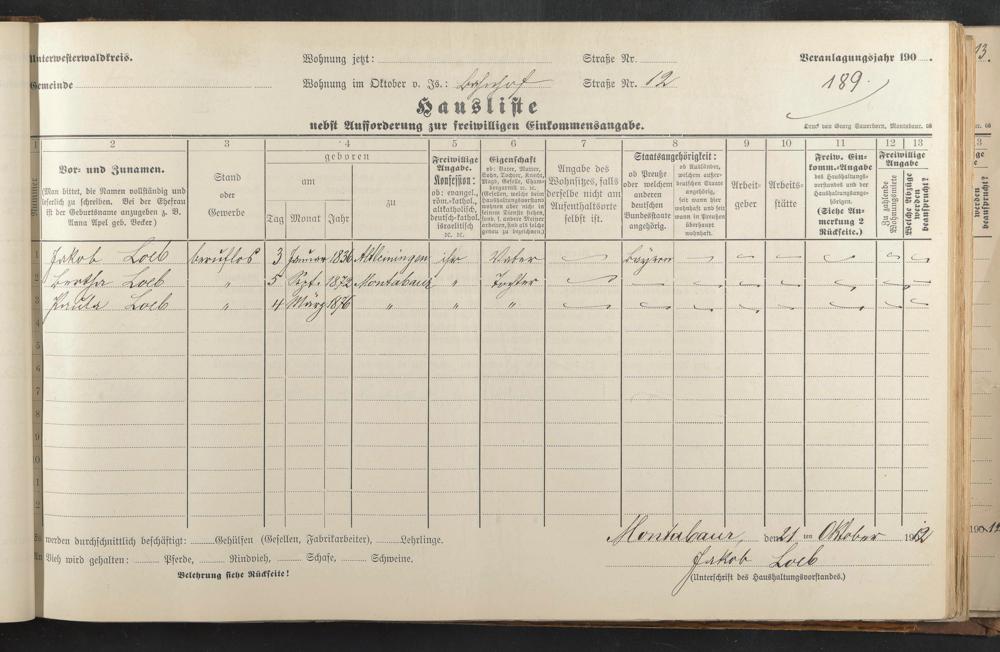 Unterwesterwaldkreis. Wohnung jetzt: Straße Nr. Veranlagungsjahr 190
Gemeinde Wohnung im Oktober v. Js.: Bahnhof Straße Nr. 12 189.
Hausliste
nebst Aufforderung zur freiwilligen Einkommensangabe.
Druck von Georg Sauerborn, Montabaur.
1 2 3 4 5 6 7 8 9 10 11 12 13
Nummer
Vor- und Zunamen.
(Man bittet, die Namen vollständig und leserlich zu schreiben. Bei der Ehefrau ist der Geburtsname anzugeben z. B. Anna Apel geb. Becker)
Stand oder Gewerbe
geboren
am
Tag Monat Jahr
zu
Freiwillige Angabe.
Konfession:
ob: evangel., röm.-kathol., altkatholisch, deutsch-kathol. israelitisch ec. ec.
Eigenschaft
Angabe des Wohnsitzes, falls derselbe nicht am Aufenthaltsorte selbst ist.
Staatsangehörigkeit:
ob Preuße oder welchem anderen deutschen Bundesstaate angehörig.
Arbeit- geber
Arbeits- stätte
Freiw. Ein- komm.-Angabe
des Haushaltungs- vorstandes und der Haushaltungsange- hörigen.
(Siehe An- merkung 2 Rückseite.)
Freiwillige Angabe
Zu zahlende Wohnungsmiete
Welche Abzüge werden beansprucht?
1 Jakob Loeb beruflos 3 Januar 1836 Altleiningen isr Vater Bayern
2 Bertha Loeb " 5 Spt. 1872 Montabaur " Tochter
3 Paula Loeb " 4 März 1876 " " "
4
5
6
7
8
9
10
1
2
werden durchschnittlich beschäftigt: Gehülfen (Gesellen, Fabrikarbeiter), Lehrlinge.
Montabaur, den 21 ten Oktober 1902
An Vieh wird gehalten: Pferde, Rindvieh, Schafe, Schweine.
Jakob Loeb
Belehrung siehe Rückseite!
(Unterschrift des Haushaltungsvorstandes.)